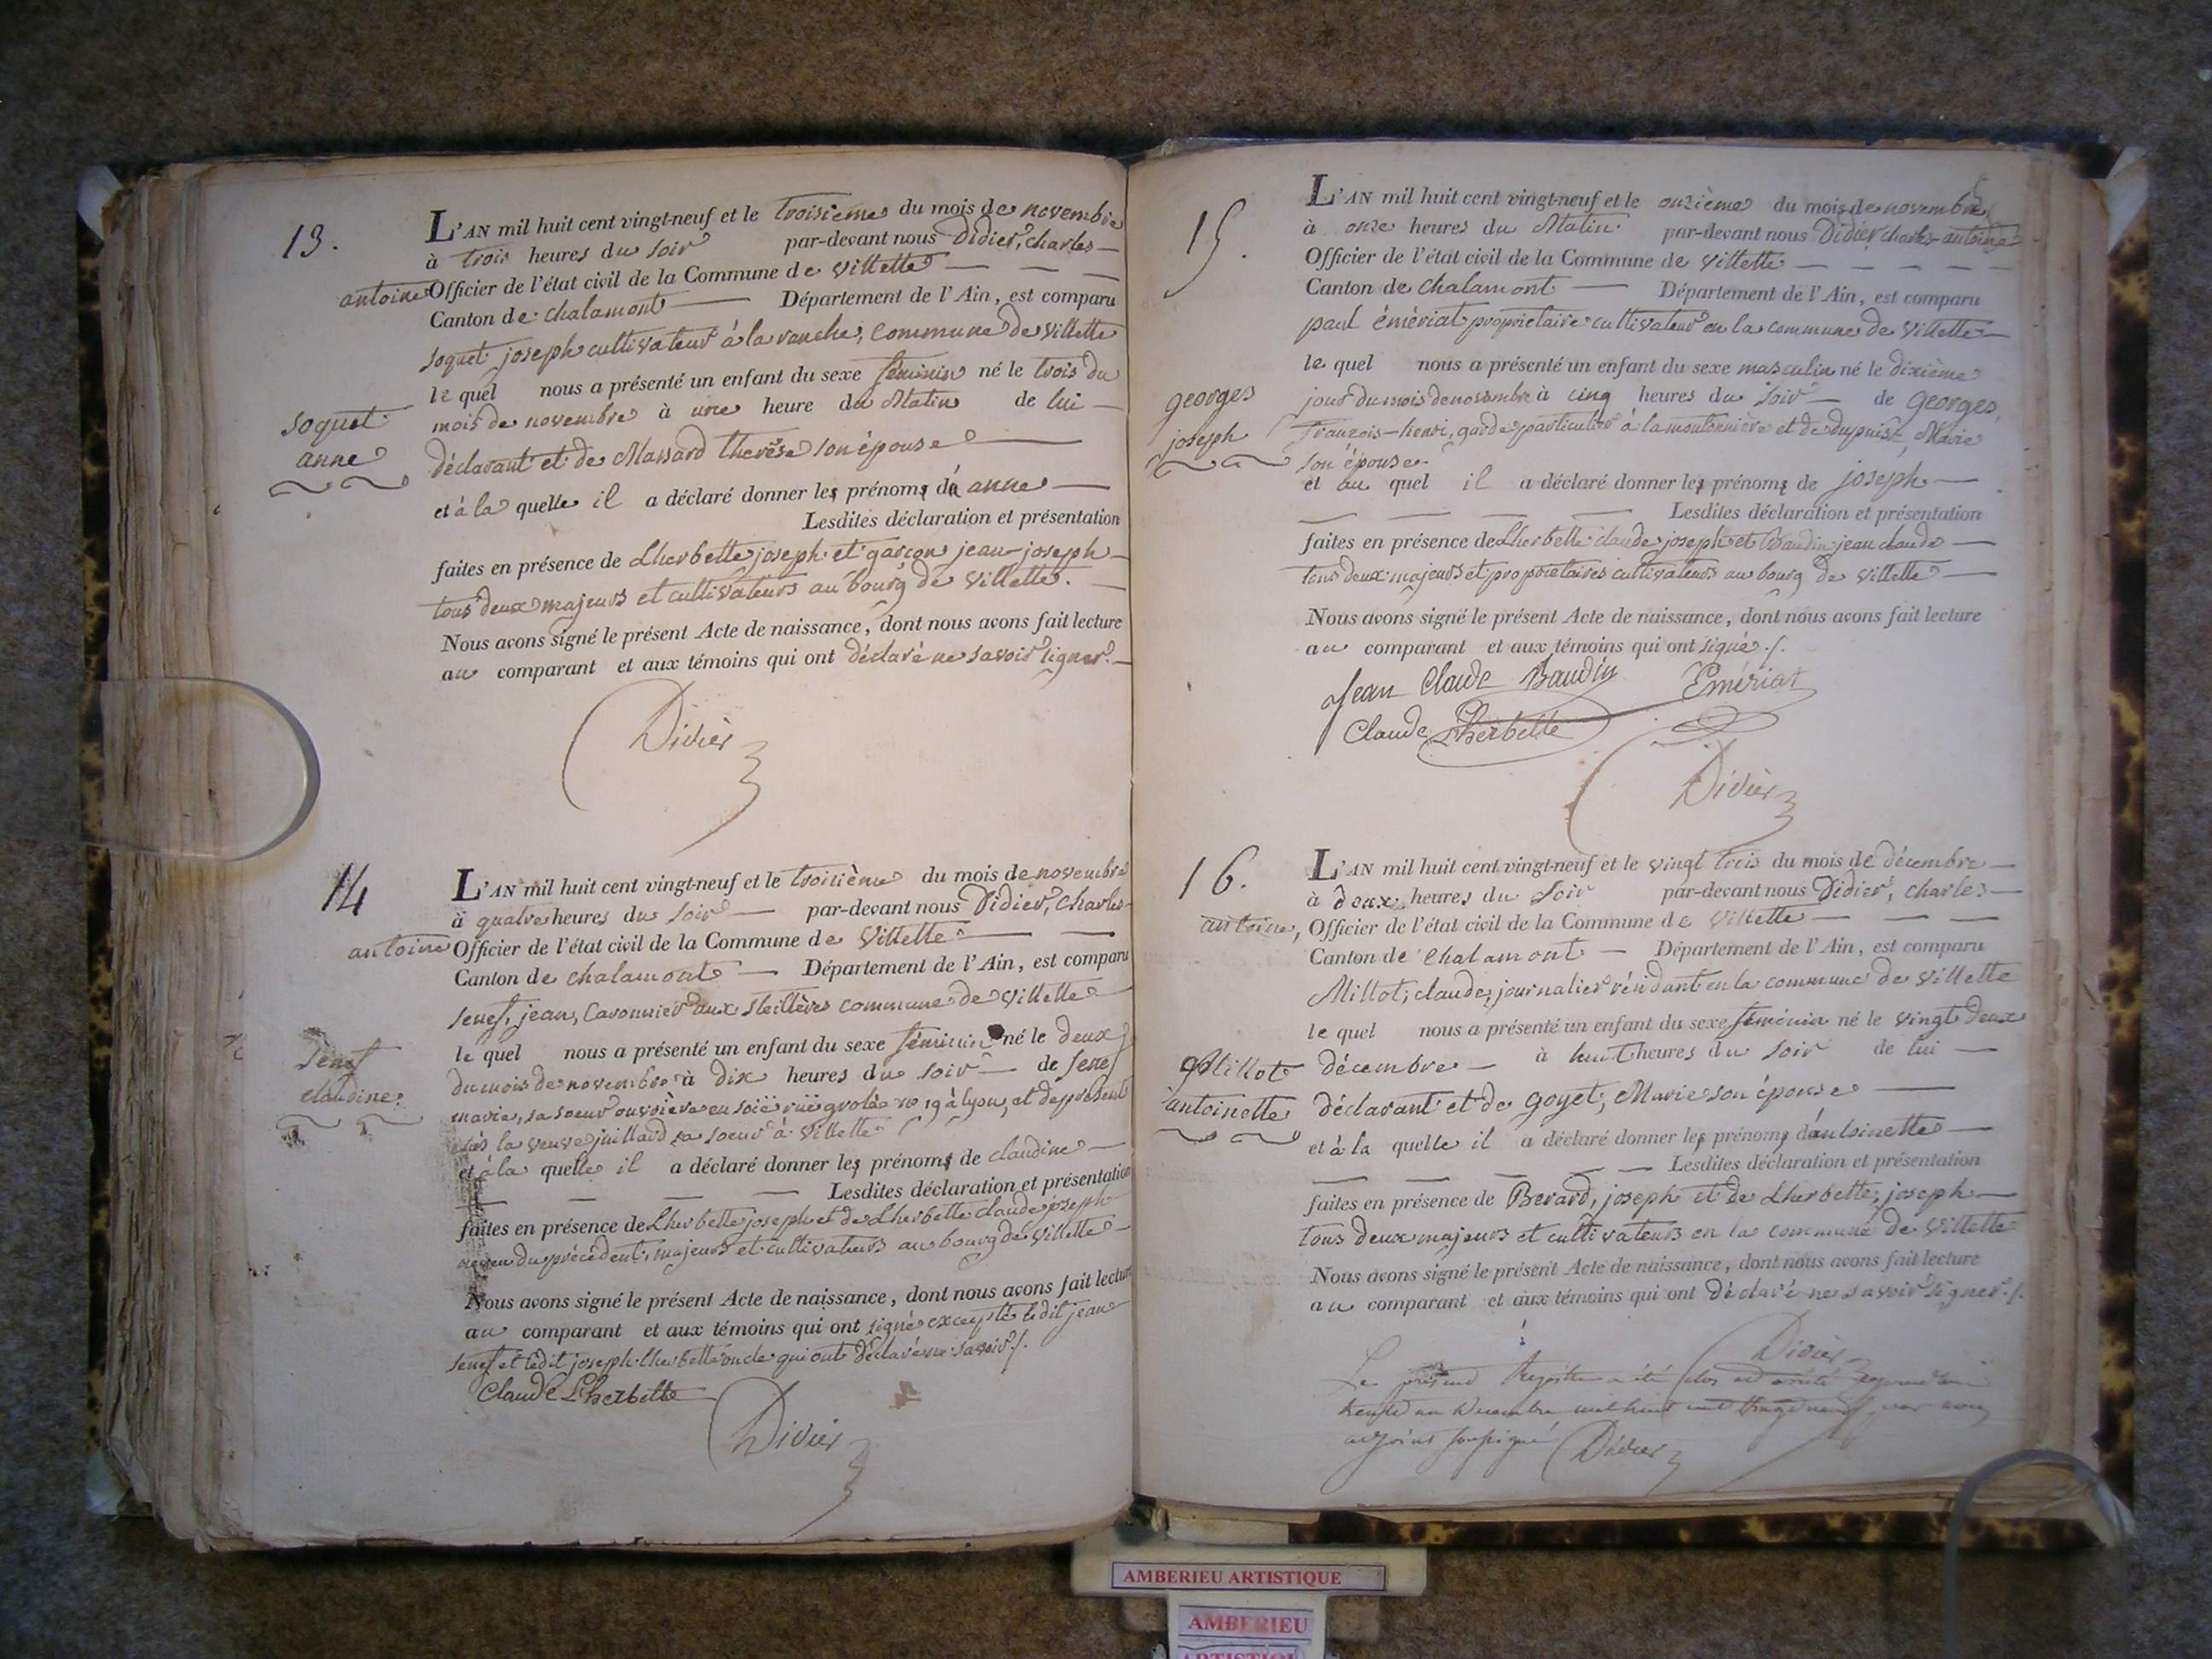 13.
L'AN mil huit cent vingt-neuf et le troisième du mois de novembre
à trois heures du soir par-devant nous Didier, charles —
antoine Officier de l'état civil de la Commune de villette — — —
Canton de chalamont — Département de l'Ain, est comparu
soquet joseph cultivateur à la ranche, commune de villette
le quel nous a présenté un enfant du sexe féminin né le trois du
mois de novembre à une heure du Matin de lui —
soquet
anne
déclarant et de Massard therèse son épouse —
et à la quelle il a déclaré donner les prénoms de anne —
Lesdites déclaration et présentation
faites en présence de Lherbette joseph et garçon jean-joseph —
tous deux majeurs et cultivateurs au bourg de villette. —
Nous avons signé le présent Acte de naissance, dont nous avons fait lecture
au comparant et aux témoins qui ont déclaré ne savoir signer. —
Didier
14
L'AN mil huit cent vingt-neuf et le troisième du mois de novembre
à quatre heures du soir — par-devant nous Didier, charles
antoine Officier de l'état civil de la Commune de villette — —
Canton de chalamont — Département de l'Ain, est comparu
senef, jean, aux commune de villette
le quel nous a présenté un enfant du sexe féminin né le deux
du mois de novembre à dix heures du soir — de senef
senef
claudine.
marie, sa soeur ouvrière en soië ruë grolée n° 19 à lyon, et de présent
chès la veuve juillard sa soeur à villette
et à la quelle il a déclaré donner les prénoms de claudine —
— — — — Lesdites déclaration et présentation
faites en présence de Lherbette joseph et de Lherbette claude joseph
neveu du précédent, majeurs et cultivateurs au bourg de villette —
Nous avons signé le présent Acte de naissance, dont nous avons fait lecture
au comparant et aux témoins qui ont signé excepté ledit jean
senef et ledit joseph Lherbette oncle qui ont déclaré ne savoir ./.
Claude Lherbette
Didier
15.
L'AN mil huit cent vingt-neuf et le onzième du mois de novembre
à onze heures du Matin. par-devant nous Didier charles-antoine
Officier de l'état civil de la Commune de villette — — — — —
Canton de chalamont — Département de l'Ain, est comparu
paul émèriat propriétaire cultivateur en la commune de villette —
le quel nous a présenté un enfant du sexe masculin né le dixième
georges
joseph
jour du mois de novembre à cinq heures du soir — de georges,
françois-henri, garde particulier à la moutonnière et de dupuis, Marie
son épouse.
et au quel il a déclaré donner les prénoms de joseph —
— — — — Lesdites déclaration et présentation
faites en présence de Lherbette claude joseph et Baudin jean claude —
tous deux majeurs et propriétaires cultivateurs au bourg de villette —
Nous avons signé le présent Acte de naissance, dont nous avons fait lecture
au comparant et aux témoins qui ont signé ./.
Jean Claude Baudin Emériat
Claude Lherbette
Didier
16.
L'AN mil huit cent vingt-neuf et le vingt trois du mois de décembre —
à deux heures du soir par-devant nous Didier, charles —
antoine, Officier de l'état civil de la Commune de villette — — —
Canton de chalamont — Département de l'Ain, est comparu
Millot, claude, journalier résidant en la commune de villette
le quel nous a présenté un enfant du sexe féminin né le vingt deux
Millot
antoinette
décembre — à huit heures du soir de lui —
déclarant et de goyet, Marie son épouse —
et à la quelle il a déclaré donner les prénoms d'antoinette —
— — — — Lesdites déclaration et présentation
faites en présence de Berard, joseph et de Lherbette, joseph —
tous deux majeurs et cultivateurs en la commune de villette
Nous avons signé le présent Acte de naissance, dont nous avons fait lecture
au comparant et aux témoins qui ont déclaré ne savoir signer ./.
Didier
Le présent Registre a été clos et arrêté
trente un décembre mil huit cent vingt neuf par nous
adjoint soussigné Didier
AMBERIEU ARTISTIQUE
AMBERIEU
ARTISTIQUE